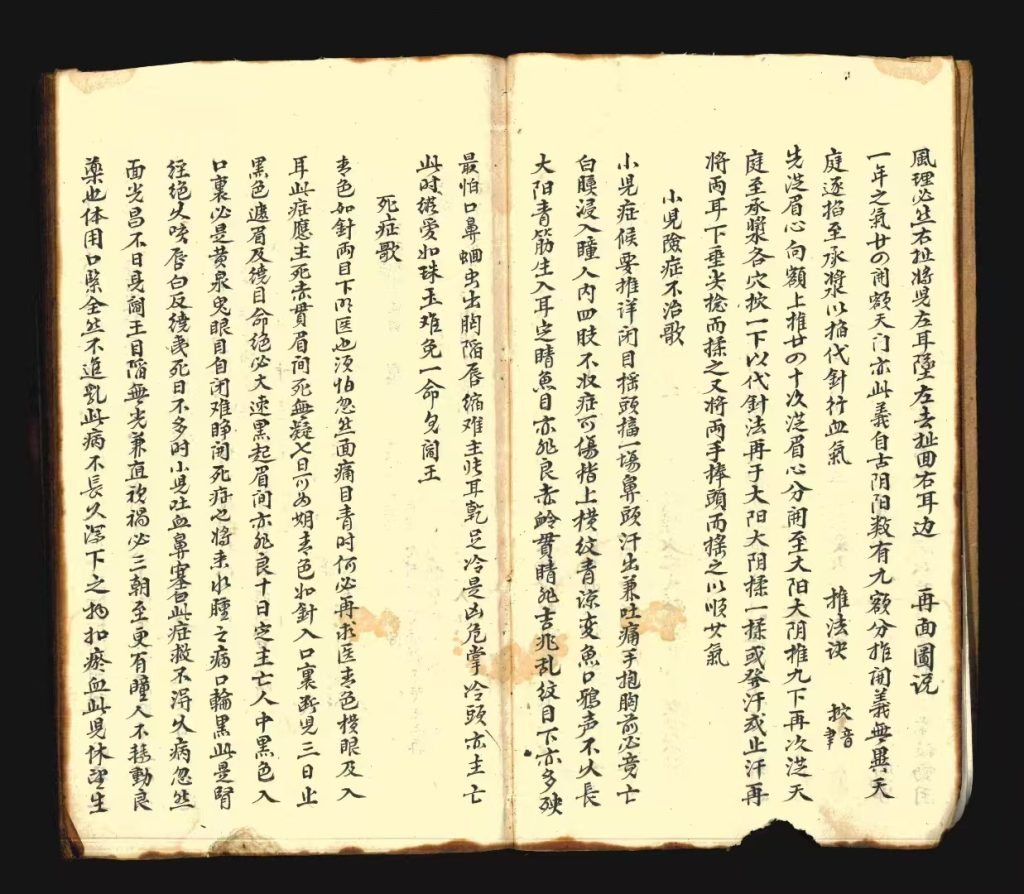 風理必然右扯將児左耳墜左去扯回右耳边　再面圖説
一年之氣廿の開額天门亦此義自古阴阳数有九額分推開義無異天
庭逐掐至承漿以掐代針行血氣　推法訣
先従眉心向額上推廿の十次従眉心分開至大阳大阴推九下再次従天
庭至承漿各穴按一下以代針法再于大阳大阴揉一揉或發汗或止汗再
將两耳下垂尖捻而揉之又將两手捧頭而搖之以順其氣
小児險症不治歌
小児症候要推详闭目摇頭搐一場鼻頭汗出兼吐痛手抱胸前必竟亡
白膜浸入瞳人内四肢不收症可傷指上横紋青諒变魚口鴉声不久長
大阳青筋生入耳定睛魚目亦非良赤脉貫睛非吉兆乱紋目下亦多殃
最怕口鼻蛔虫出胸陥唇缩难主张耳乾足冷是凶危掌冷頭亦主亡
此时縱爱如珠玉难免一命見阎王
死症歌
青色如針两目下明医也须怕忽然面痛目青时何必再求医青色横眼及入
耳此症應主死赤貫眉间死無疑七日可为期青色如針入口裏断児三日止
黑色遮眉及繞目命絶必大速黑起眉间亦非良十日定主亡人中黑色入
口裏必是黄泉鬼眼目自闭难睁開死症之将来水腫之病口輪黑此是腎
経絶久咳唇白反繞死日不多时小児吐血鼻塞色此症救不得久病忽然
面光昌不日見阎王目陥無光兼直視禍必三朝至更有瞳人不移動良
藥也体用口緊全然不進乳此病不長久瀉下之物如瘀血此児休望生